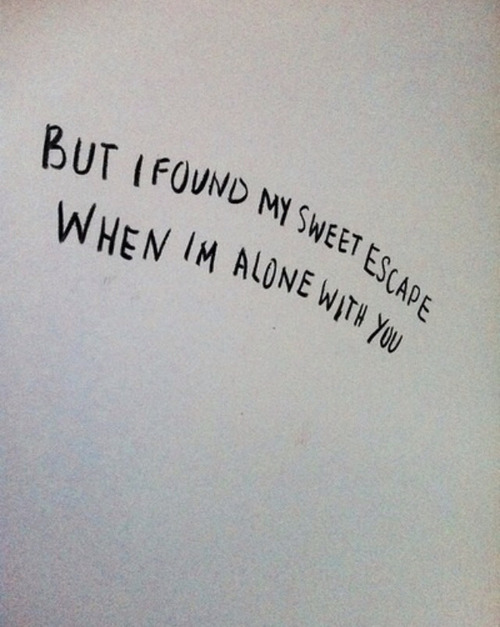 BUT I FOUND MY SWEET ESCAPE
WHEN IM ALONE WITH YOU